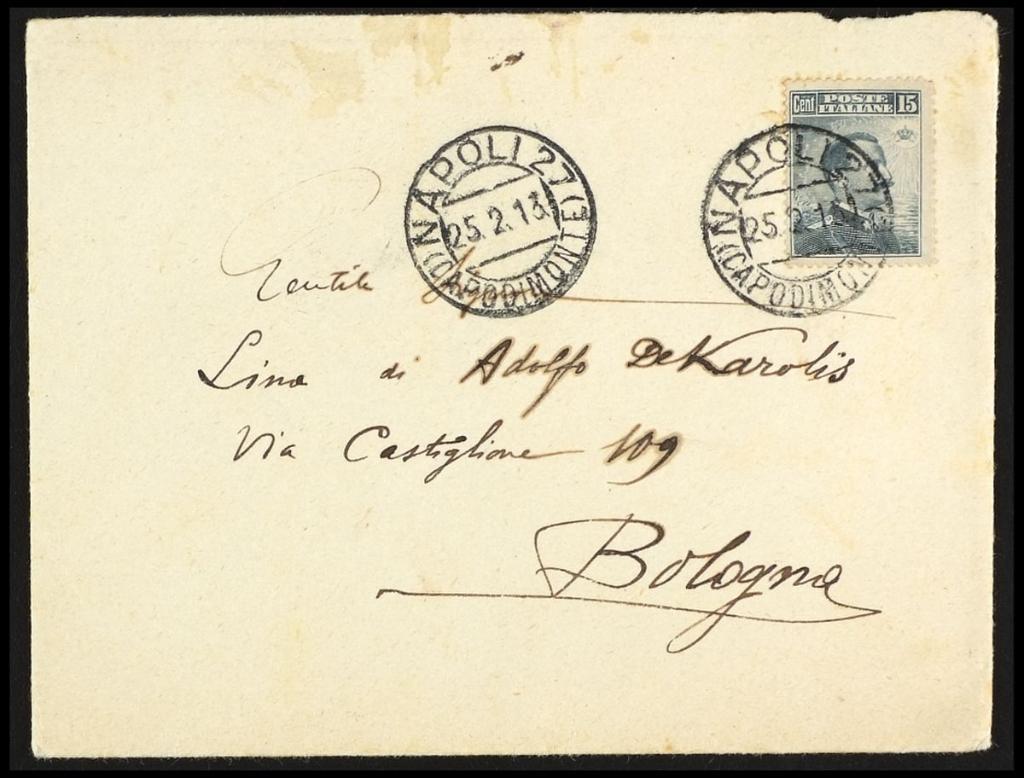 Cent POSTE ITALIANE 15
NAPOLI 27
25.2.13
(CAPODIMONTE)
NAPOLI 27
25.2.13
(CAPODIMONTE)
Gentile
Lina di Adolfo De Karolis
Via Castiglione 109
Bologna